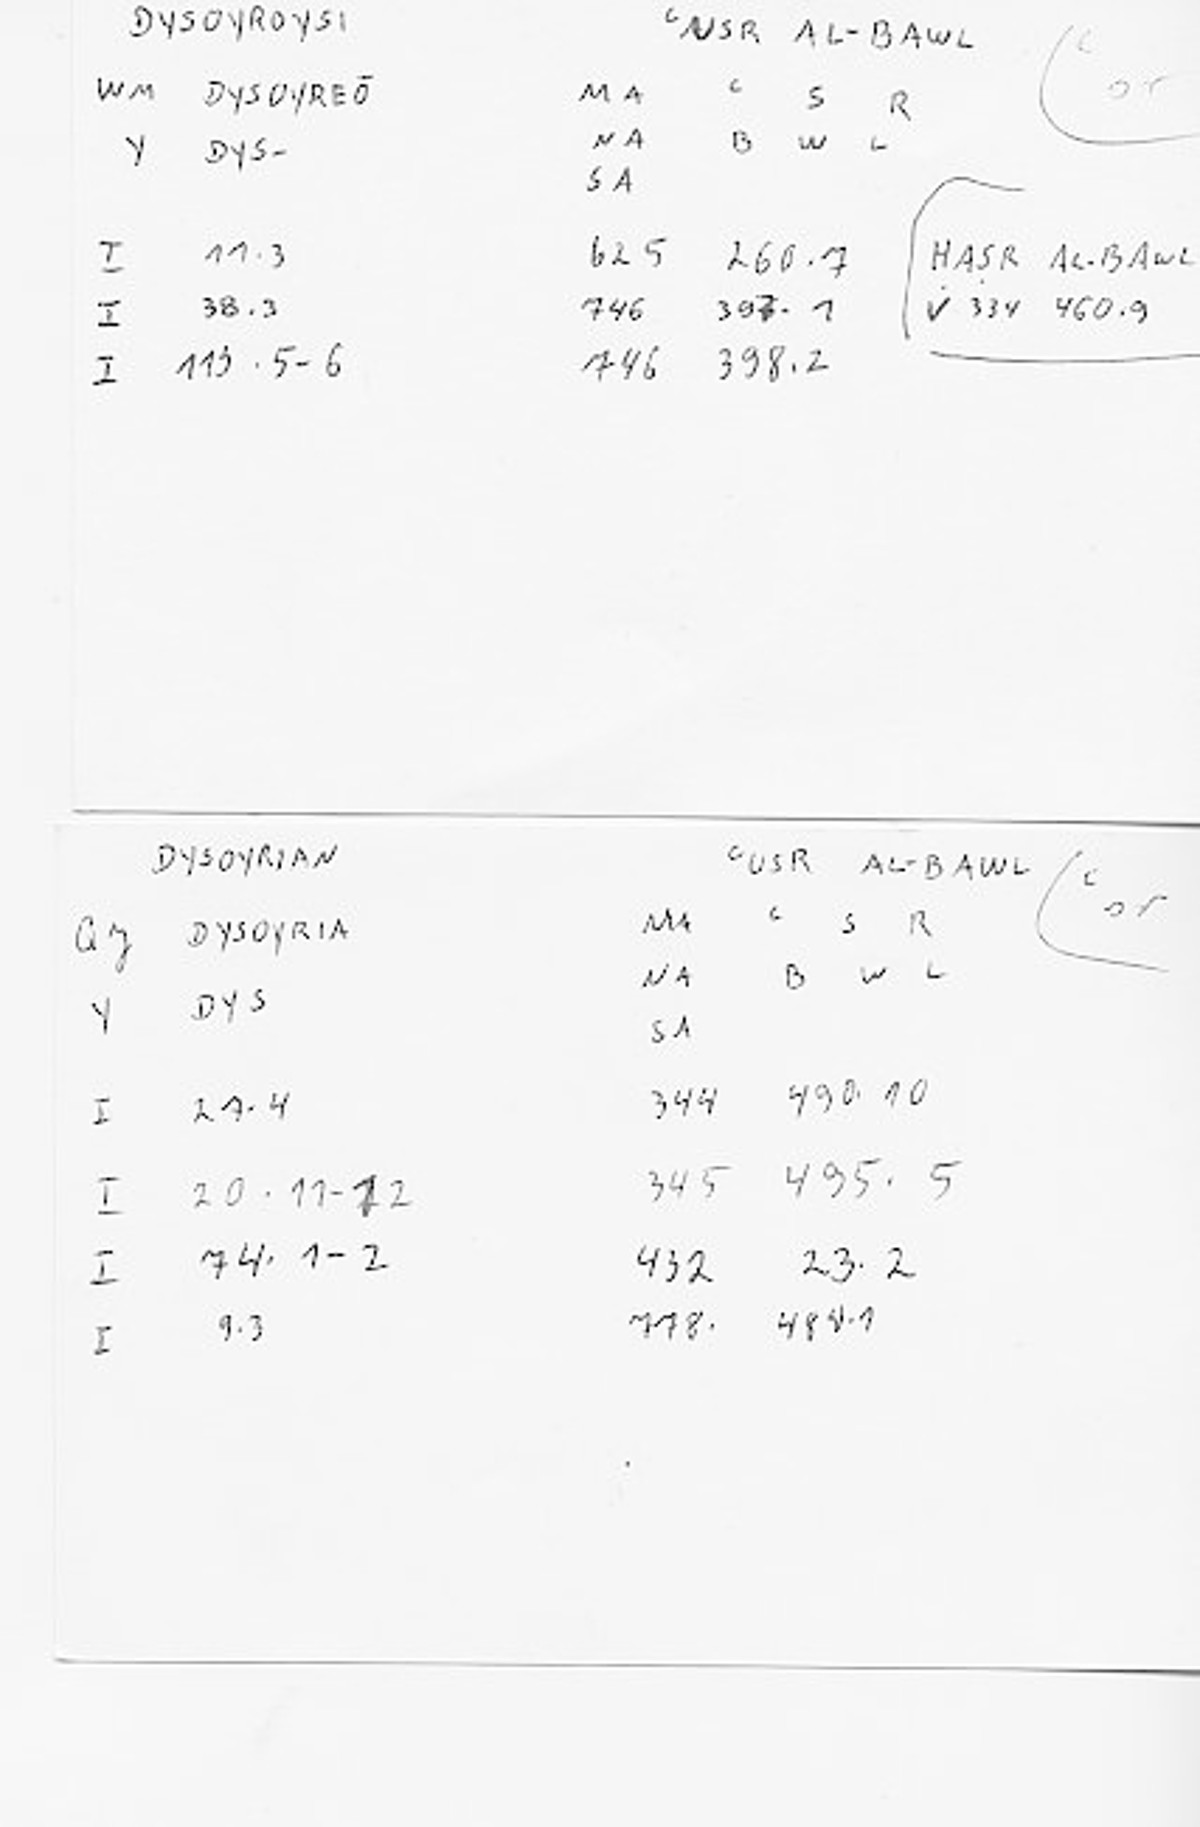 DYSOYROYSI ᶜNSR AL-BAWL (ᶜ or
WM DYSOYREŌ MA ᶜ S R
Y DYS- NA B W L
SA
I 11.3 625 260.7 HAṢR AL-BAWL
I 38.3 746 397.1 V 334 460.9
I 119.5-6 746 398.2
DYSOYRIAN ᶜUSR AL-BAWL (ᶜ or
DYSOYRIA MA ᶜ S R
Y DYS NA B W L
SA
I 27.4 344 490.10
I 20.11-12 345 495.5
I 74.1-2 432 23.2
I 9.3 778.